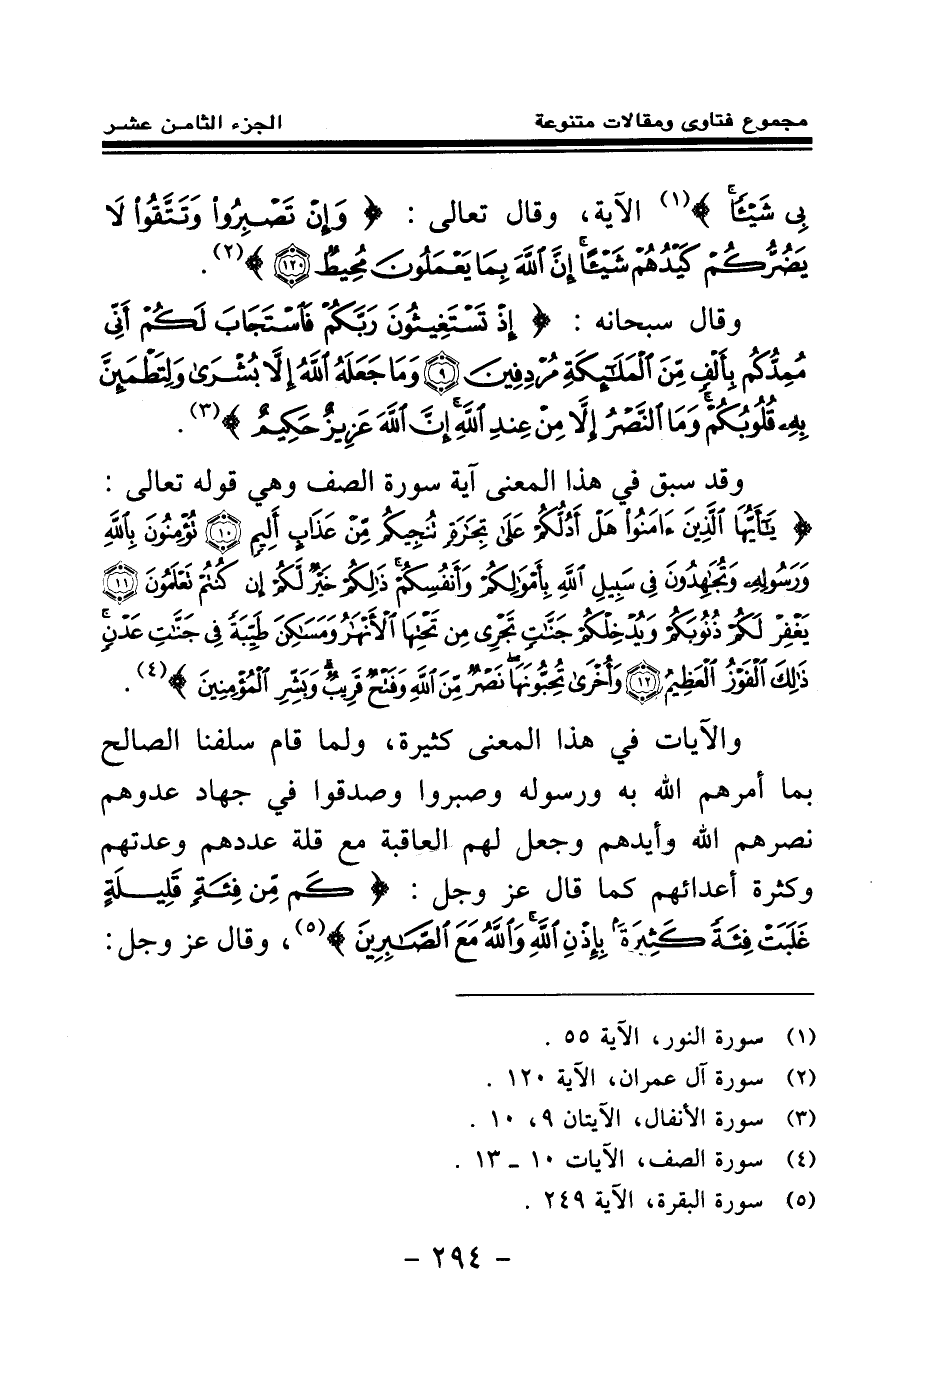 مجموع فتاوى ومقالات متنوعة الجزء الثامن عشر
بِى شَيْـًٔا ﴾(١) الآية، وقال تعالى : ﴿ وَإِنْ تَصْبِرُوا۟ وَتَتَّقُوا۟ لَا
يَضُرُّكُمْ كَيْدُهُمْ شَيْـًٔا إِنَّ ٱللَّهَ بِمَا يَعْمَلُونَ مُحِيطٌ ١٢٠ ﴾(٢) .
وقال سبحانه : ﴿ إِذْ تَسْتَغِيثُونَ رَبَّكُمْ فَٱسْتَجَابَ لَكُمْ أَنِّى
مُمِدُّكُم بِأَلْفٍ مِّنَ ٱلْمَلَٰٓئِكَةِ مُرْدِفِينَ ٩ وَمَا جَعَلَهُ ٱللَّهُ إِلَّا بُشْرَىٰ وَلِتَطْمَئِنَّ
بِهِۦ قُلُوبُكُمْ وَمَا ٱلنَّصْرُ إِلَّا مِنْ عِندِ ٱللَّهِ إِنَّ ٱللَّهَ عَزِيزٌ حَكِيمٌ ﴾(٣) .
وقد سبق في هذا المعنى آية سورة الصف وهي قوله تعالى :
﴿ يَٰٓأَيُّهَا ٱلَّذِينَ ءَامَنُوا۟ هَلْ أَدُلُّكُمْ عَلَىٰ تِجَٰرَةٍ تُنجِيكُم مِّنْ عَذَابٍ أَلِيمٍ ١٠ تُؤْمِنُونَ بِٱللَّهِ
وَرَسُولِهِۦ وَتُجَٰهِدُونَ فِى سَبِيلِ ٱللَّهِ بِأَمْوَٰلِكُمْ وَأَنفُسِكُمْ ذَٰلِكُمْ خَيْرٌ لَّكُمْ إِن كُنتُمْ تَعْلَمُونَ ١١
يَغْفِرْ لَكُمْ ذُنُوبَكُمْ وَيُدْخِلْكُمْ جَنَّٰتٍ تَجْرِى مِن تَحْتِهَا ٱلْأَنْهَٰرُ وَمَسَٰكِنَ طَيِّبَةً فِى جَنَّٰتِ عَدْنٍ
ذَٰلِكَ ٱلْفَوْزُ ٱلْعَظِيمُ ١٢ وَأُخْرَىٰ تُحِبُّونَهَا نَصْرٌ مِّنَ ٱللَّهِ وَفَتْحٌ قَرِيبٌ وَبَشِّرِ ٱلْمُؤْمِنِينَ ﴾(٤) .
والآيات في هذا المعنى كثيرة، ولما قام سلفنا الصالح
بما أمرهم الله به ورسوله وصبروا وصدقوا في جهاد عدوهم
نصرهم الله وأيدهم وجعل لهم العاقبة مع قلة عددهم وعدتهم
وكثرة أعدائهم كما قال عز وجل : ﴿ كَم مِّن فِئَةٍ قَلِيلَةٍ
غَلَبَتْ فِئَةً كَثِيرَةً بِإِذْنِ ٱللَّهِ وَٱللَّهُ مَعَ ٱلصَّٰبِرِينَ ﴾(٥) ، وقال عز وجل :
(١) سورة النور، الآية ٥٥ .
(٢) سورة آل عمران، الآية ١٢٠ .
(٣) سورة الأنفال، الآيتان ٩، ١٠ .
(٤) سورة الصف، الآيات ١٠ ـ ١٣ .
(٥) سورة البقرة، الآية ٢٤٩ .
- ٢٩٤ -